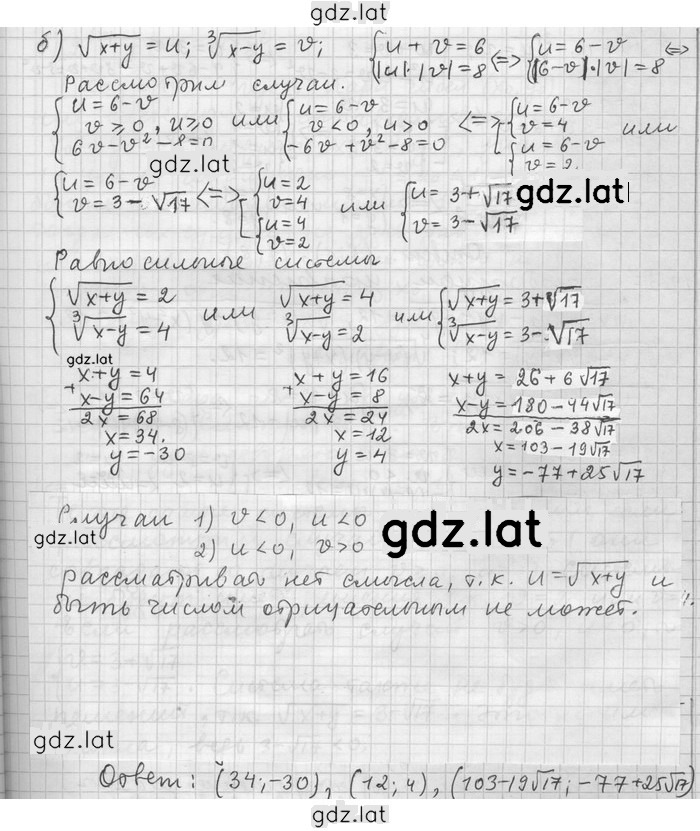 gdz.lat
б) √x+y = u; ∛x-y = v; {u + v = 6 {|u|·|v| = 8 <=> {u = 6-v {|6-v|·|v| = 8 <=>
Рассмотрим случаи.
{u = 6-v {v ⩾ 0, u ⩾ 0 {6v - v² - 8 = 0 или {u = 6-v {v < 0, u > 0 {-6v + v² - 8 = 0 <=> [{u = 6-v {v = 4 [{u = 6-v {v = 2. или
gdz.lat
{u = 6-v {v = 3-√17 <=> [{u = 2 {v = 4 [{u = 4 {v = 2 или {u = 3+√17 {v = 3-√17
gdz.lat
Равносильные системы
{√x+y = 2 {∛x-y = 4 или √x+y = 4 ∛x-y = 2 или {√x+y = 3+√17 {∛x-y = 3-√17
gdz.lat
x+y = 4 x+y = 16 x+y = 26+6√17
+ x-y = 64 + x-y = 8 x-y = 180-44√17
2x = 68 2x = 24 2x = 206-38√17
x = 34. x = 12 x = 103-19√17
y = -30 y = 4 y = -77+25√17
Случаи 1) v < 0, u < 0
gdz.lat
gdz.lat
2) u < 0, v > 0
рассматривать нет смысла, т.к. u = √x+y и
быть числом отрицательным не может.
gdz.lat
Ответ: (34;-30), (12;4), (103-19√17; -77+25√17)
gdz.lat